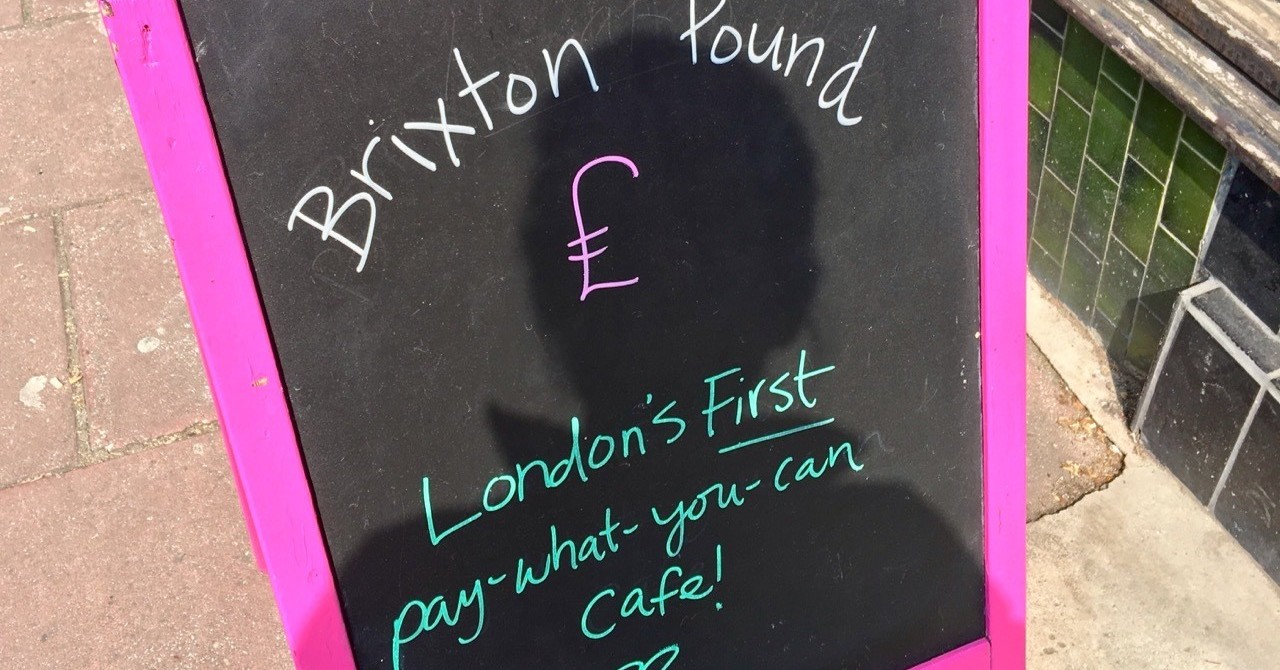 Brixton Pound
£
London's First
pay-what-you-can
Cafe!